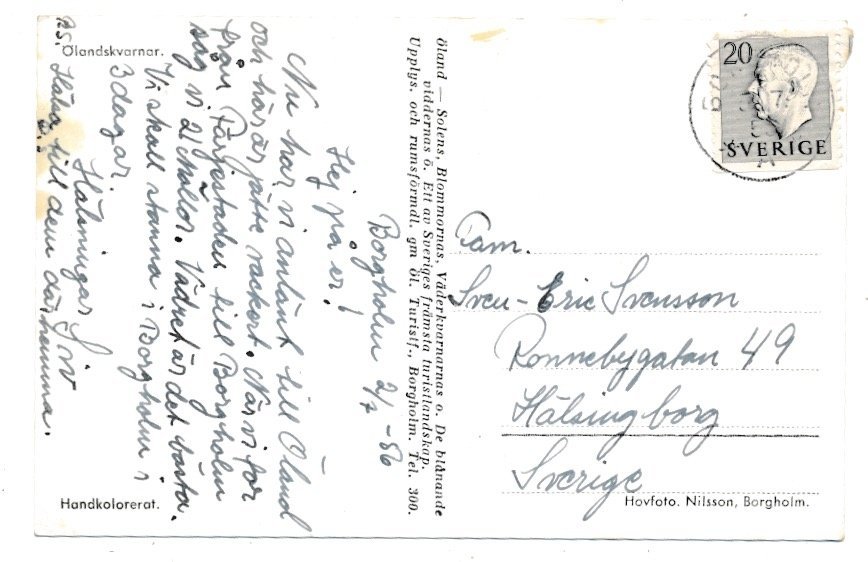 Ölandskvarnar.
Borgholm 2/7 -56
Hej på er!
Nu har vi anlänt till Öland
och här är jätte vackert. När vi for
från Färjestaden till Borgholm
såg vi 21 Mollor. Vädret är det bästa.
Vi skall stanna i Borgholm i
3 dagar.
Hälsningar Siv
P.S. Hälsa till dem där hemma.
Handkolorerat.
Öland — Solens, Blommornas, Väderkvarnarnas o. De blånande
viddernas ö. Ett av Sveriges främsta turistlandskap.
Upplys. och rumsförmdl. gm Öl. Turistf., Borgholm. Tel. 300.
20
SVERIGE
Fam.
Sven-Eric Svensson
Ronnebygatan 49
Hälsingborg
Sverige
Hovfoto. Nilsson, Borgholm.